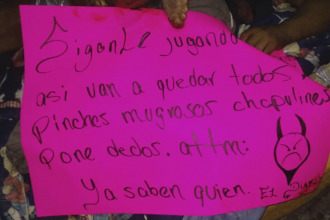 Siganle jugando
asi van a quedar todos
Pinches mugrosos chapulines
Pone dedos. attm:
Ya saben quien. El Diablo